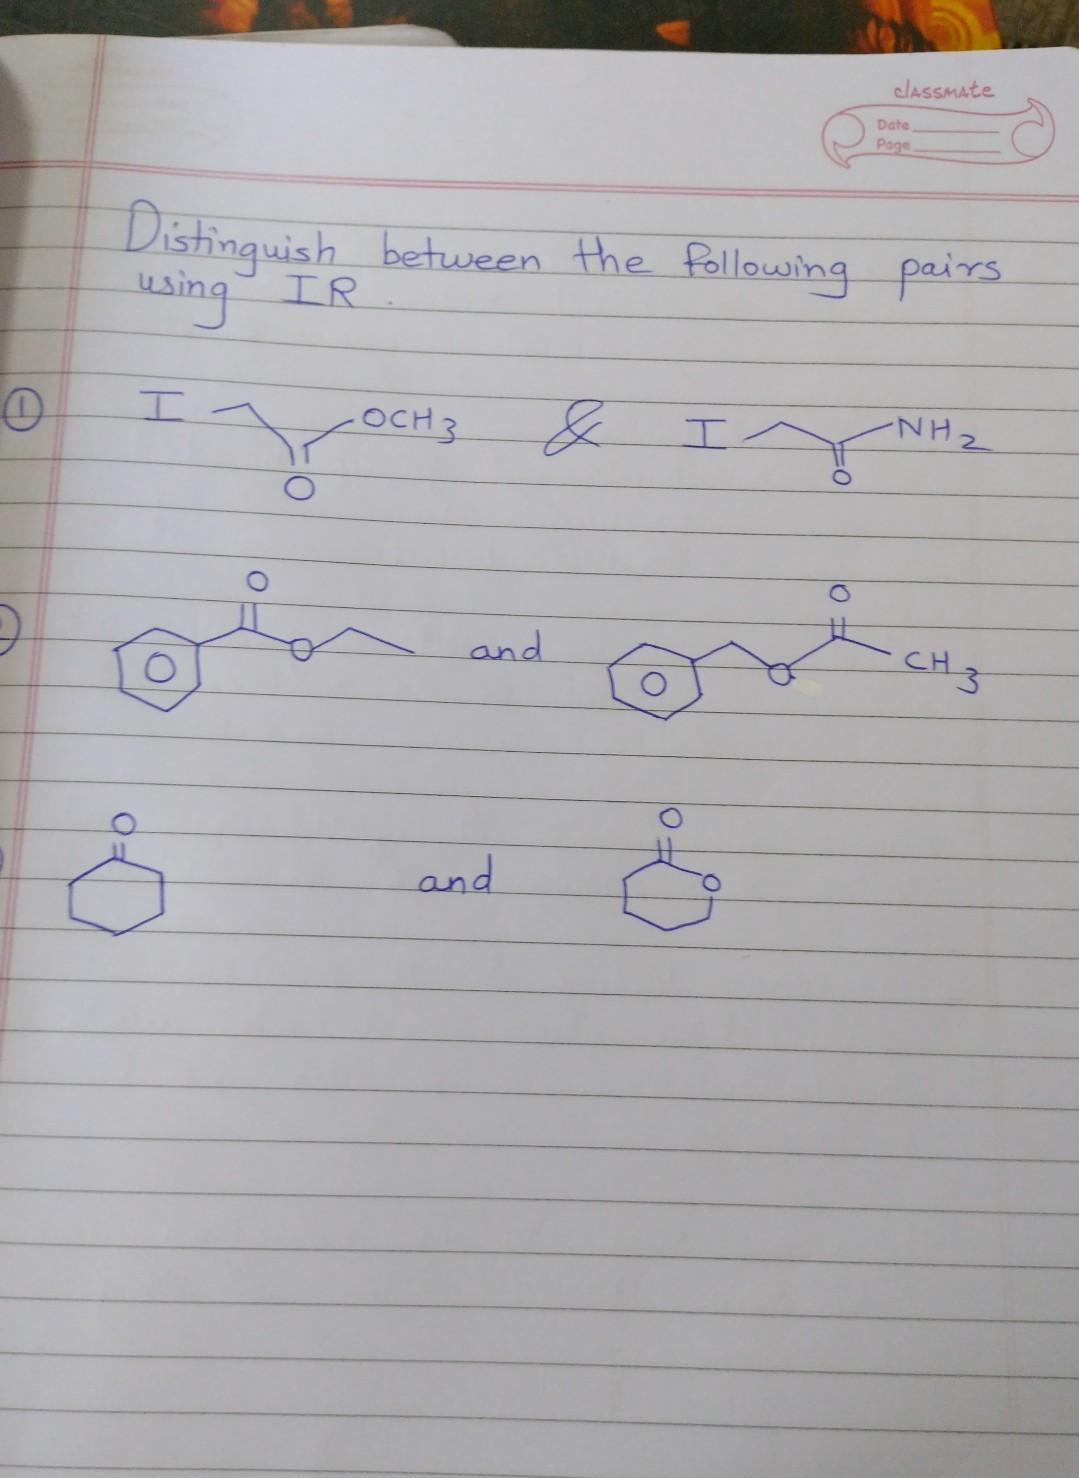 classmate
Date
Page
Distinguish between the following pairs
using IR.
① I OCH3 & I NH2
O O
O O
O and O CH3
O O
O O
and O